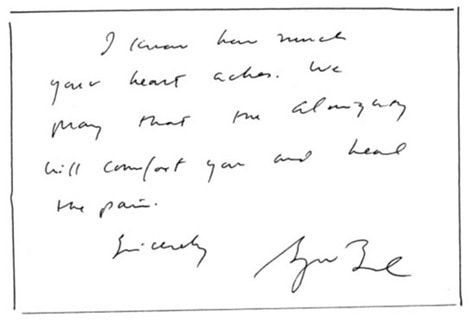 I know how much
your heart aches. We
pray that the Almighty
will comfort you and heal
the pain.
Sincerely